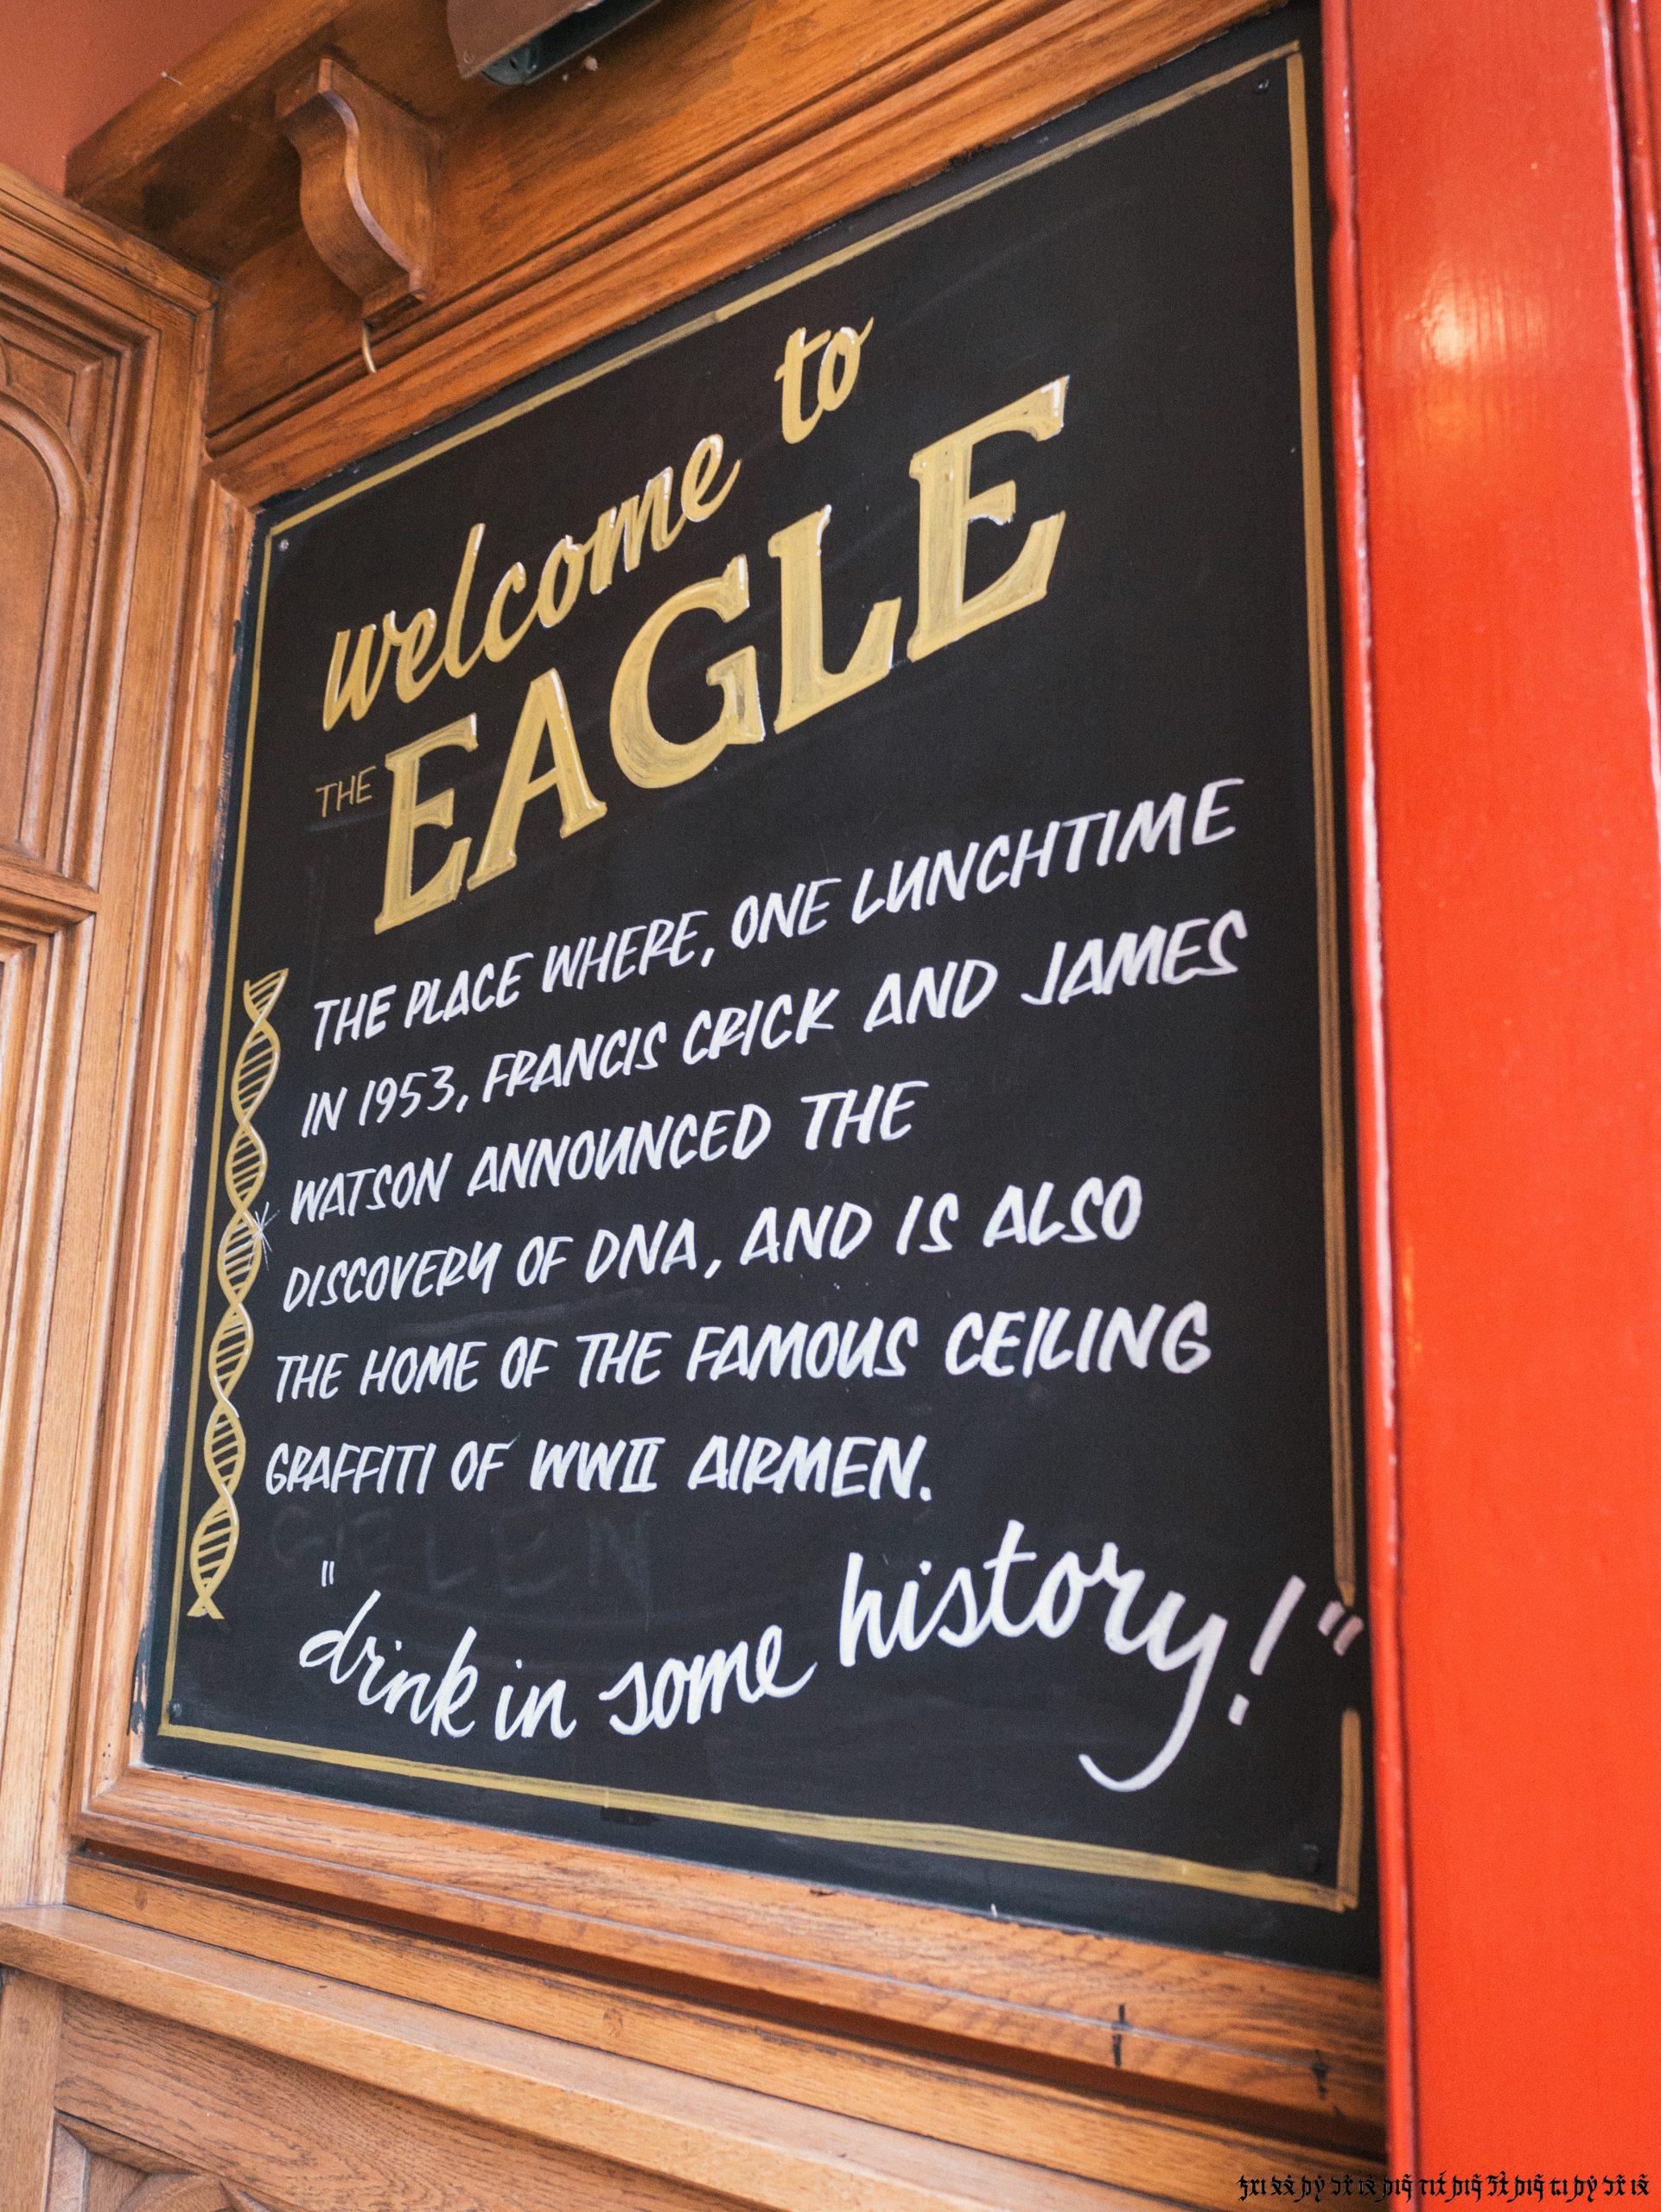 welcome to
THE EAGLE
THE PLACE WHERE, ONE LUNCHTIME
IN 1953, FRANCIS CRICK AND JAMES
WATSON ANNOUNCED THE
DISCOVERY OF DNA, AND IS ALSO
THE HOME OF THE FAMOUS CEILING
GRAFFITI OF WWII AIRMEN.
"drink in some history!"